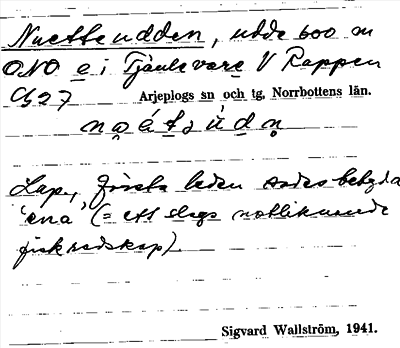 Nuetteudden, udde 600 m
ONO e i Tjaulevare V Rappen
Gb27 Arjeplogs sn och tg, Norrbottens län.
Lap., första leden sades betyda
'ena' (= ett slags notliknande
fiskredskap).
Sigvard Wallström, 1941.